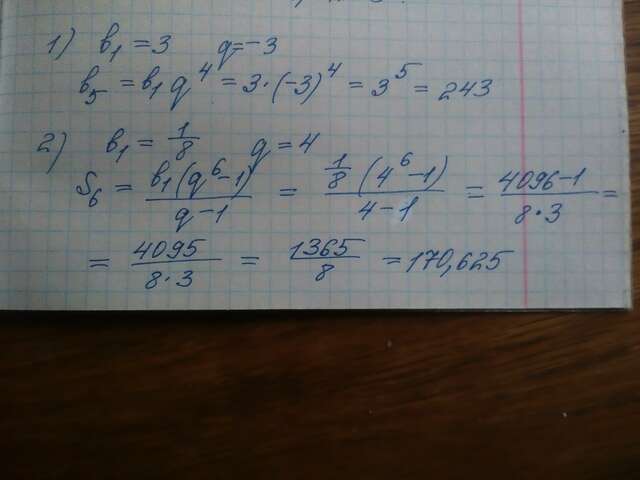 1) b₁ = 3 q = -3
b₅ = b₁ q⁴ = 3·(-3)⁴ = 3⁵ = 243
2) b₁ = 1/8 q = 4
S₆ = b₁(q⁶-1)/(q-1) = 1/8(4⁶-1)/(4-1) = (4096-1)/(8·3) =
= 4095/(8·3) = 1365/8 = 170,625